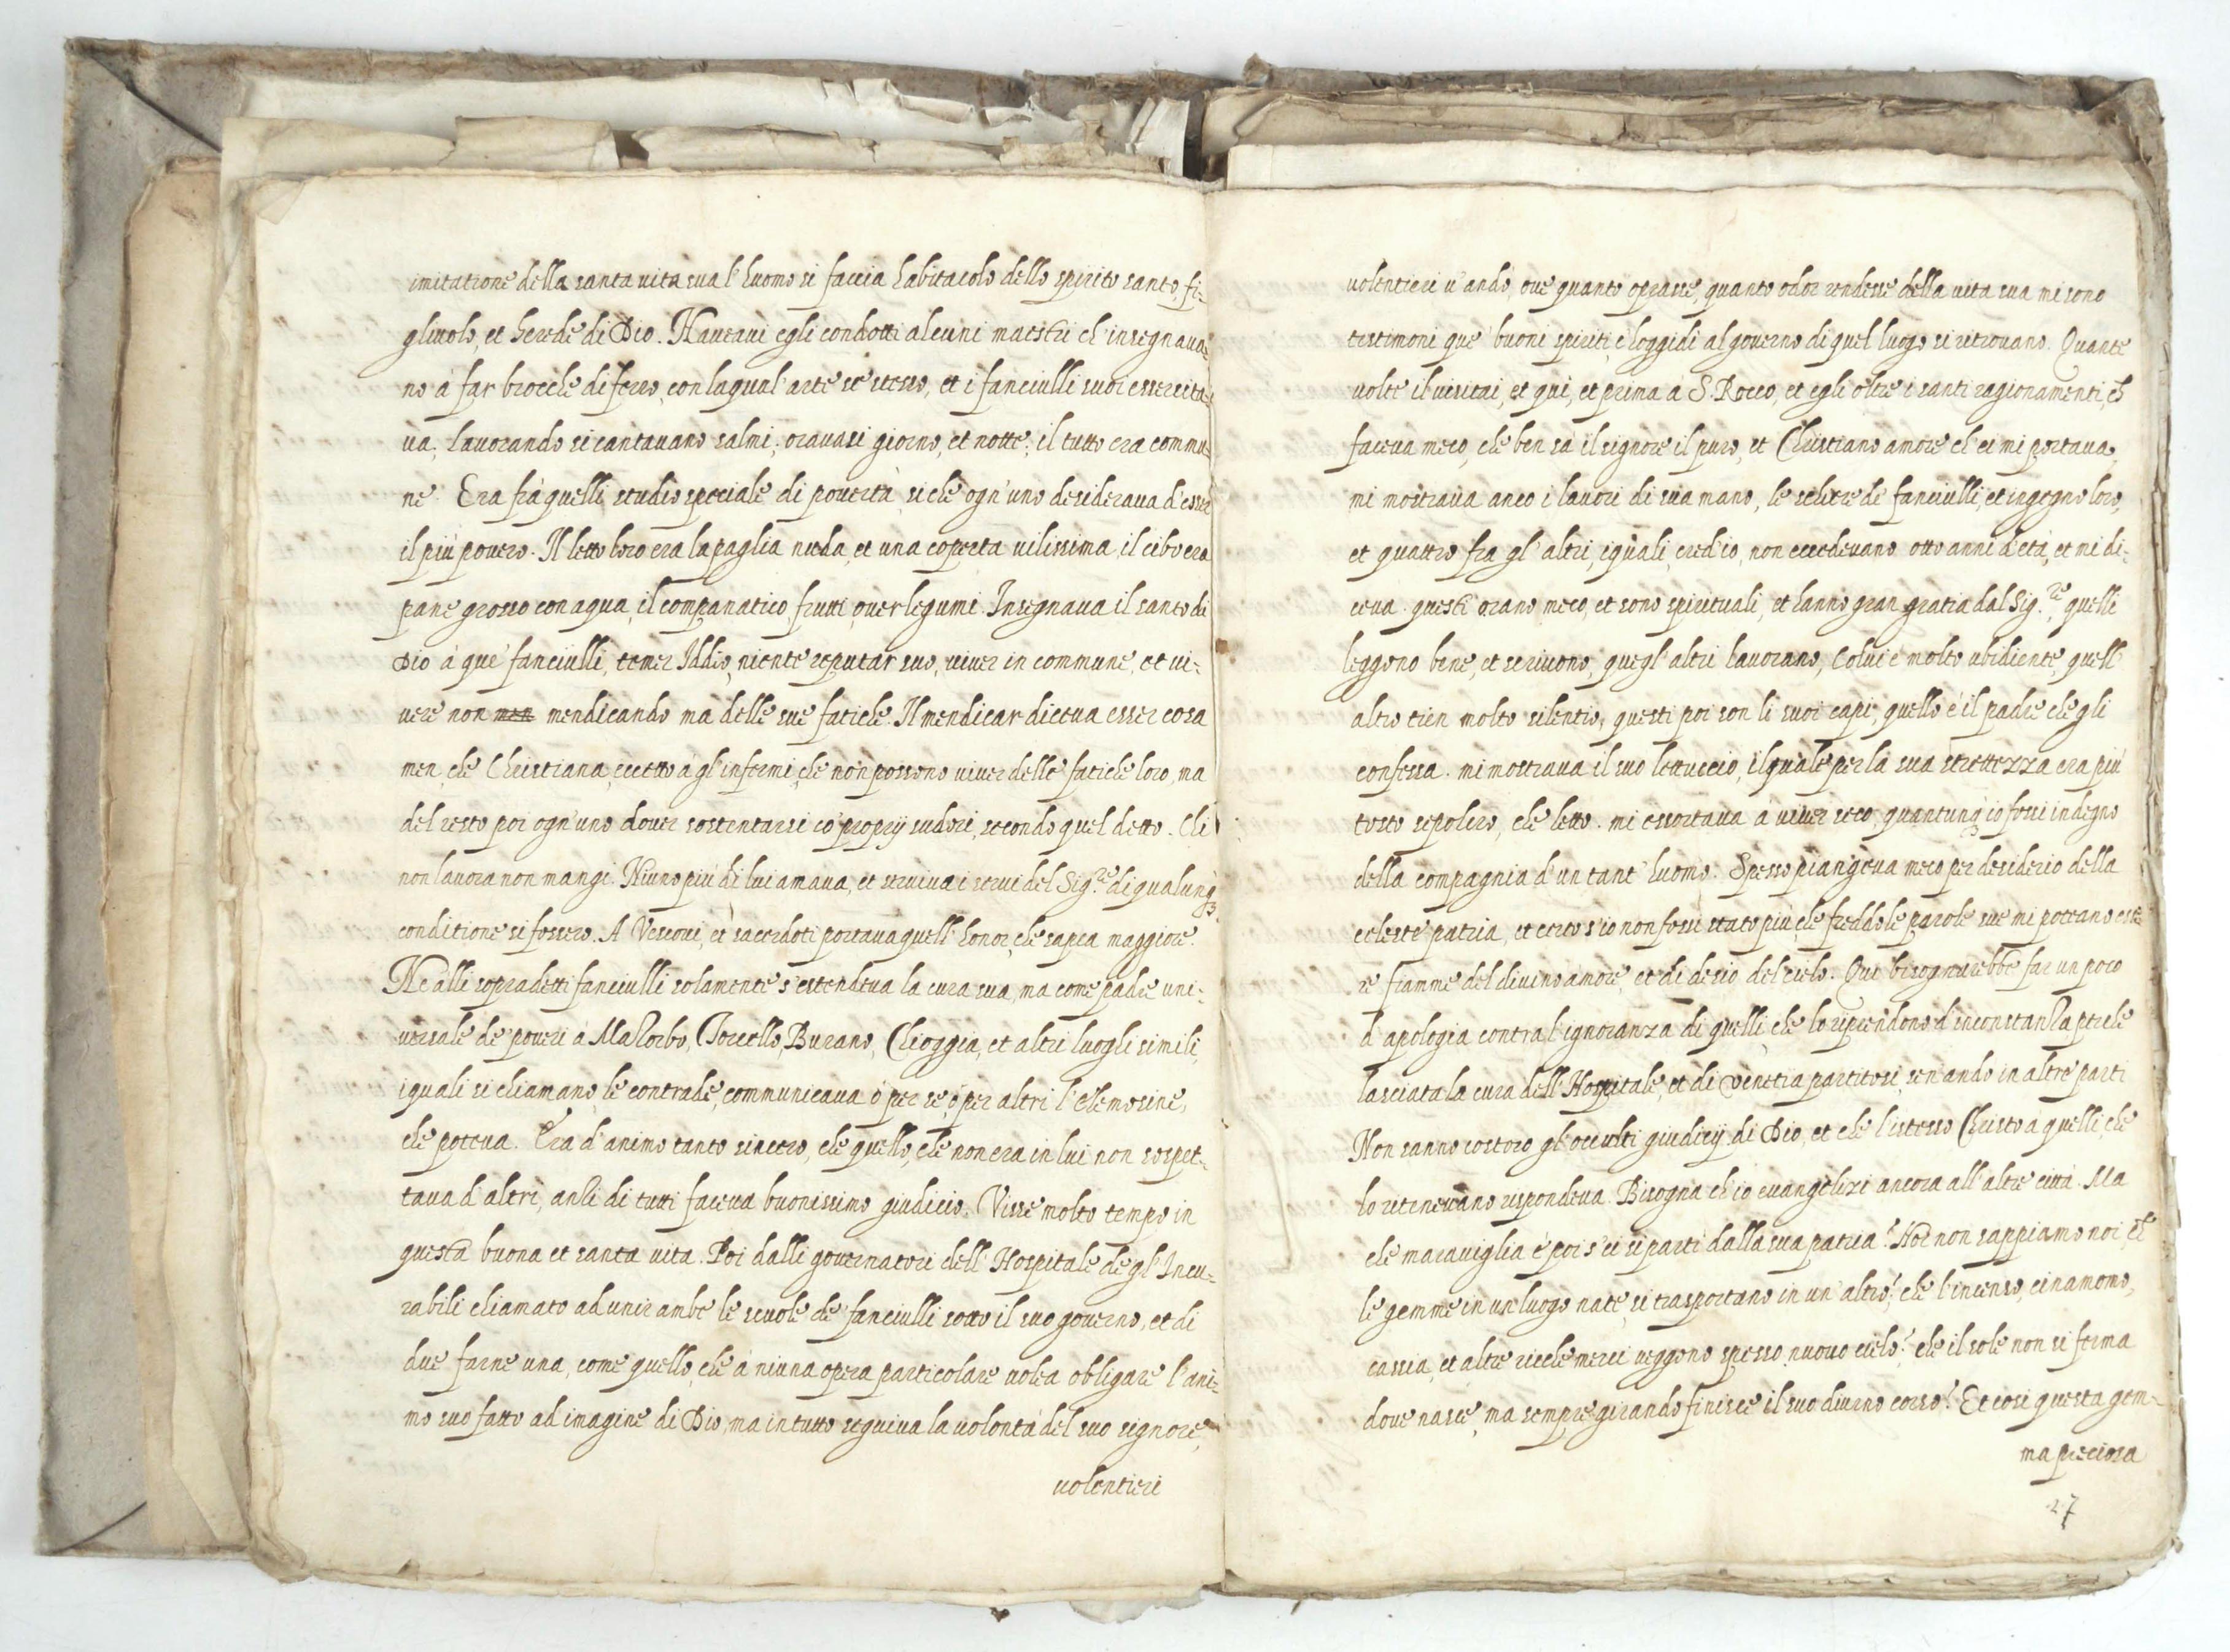 imitatione della santa uita sua l'huomo si faccia habitacolo dello spirito santo, fi-
gliuolo, et herede di Dio. Haueaui egli condotti alcuni maestri ch'insegnaua-
no à far brocche di ferro, con laqual'arte se stesso, et i fanciulli suoi essercita-
ua; lauorando si cantauano salmi; orauasi giorno, et notte; il tutto era commu-
ne. Era frà quelli studio speciale di pouertà, siche ogn'uno desideraua d'esser
il più pouero. Il letto loro era la paglia nuda, et una coperta uilissima, il cibo era
pane grosso con aqua, il companatico, frutti, ouer legumi. Insegnaua il santo di
Dio à que' fanciulli, temer Iddio, niente reputar suo, uiuer in commune, et ui-
uere non men mendicando mà delle sue fatiche. Il mendicar diceua esser cosa
men, che Christiana, eccetto à gl'infermi, che non possono uiuer delle fatiche loro, ma
del resto poi ogn'uno douer sostentarsi co' proprij sudori, secondo quel detto. Chi
non lauora non mangi. Niuno più di lui amaua, et seruiua i serui del Sig.re di qualunq3
conditione si fossero. A Vescoui, et sacerdoti portaua quell'honor, che sapea maggiore.
Ne alli sopradetti fanciulli solamente s'estendeua la cura sua, ma come padre uni-
uersale de' poueri à Mazorbo, Torcello, Burano, Chioggia, et altri luoghi simili,
i quali si chiamano, le contrade, communicaua ò per se, ò per altri l'elemosine,
che poteua. Era d'animo tanto sincero, che quello, che non era in lui non sospet-
taua d'altri, anzi di tutti faceua buonissimo giudicio. Visse molto tempo in
questa buona et santa uita. Poi dalli gouernatori dell'Hospitale de gl'Incu-
rabili chiamato ad unir ambe le scuole de' fanciulli sotto il suo gouerno, et di
due farne una, come quello, che à niuna opera particolare uolea obligare l'ani-
mo suo fatto ad imagine di Dio, ma in tutto seguiua la uolontà del suo signore,
uolentieri
uolentieri u'andò, oue quanto oprasse, quanto odor rendesse della uita sua mi sono
testimoni que' buoni spiriti, c'hoggidì al gouerno di quel luogo si ritrouano. Quante
uolte il uisitai, et quì, et prima a S. Rocco, et egli oltre i santi ragionamenti, ch'
faceua meco, che ben sà il signore il puro, et Christiano amore ch'ei mi portaua,
mi mostraua anco i lauori di sua mano, le schere de' fanciulli, et ingegno loro,
et quattro fra gl'altri, i quali, cred'io, non eccedeuano otto anni d'età, et mi di-
ceua. questi orano meco, et sono spirituali, et hanno gran gratia dal Sig.re, quelli
leggono bene, et scriuono, quegl'altri lauorano, Colui è molto ubidiente, quell'
altro tien molto silentio, questi poi son li suoi capi, quello è il padre che gli
confessa. mi mostraua il suo lettuccio, il quale per la sua strettezza era più
tosto sepolcro, che letto. mi essortaua à uiuer seco, quantunq3 io fossi indegno
della compagnia d'un tant'huomo. Spesso piangeua meco per desiderio della
celeste patria, et certo s'io non fossi stato più, che freddo le parole sue mi poteano esse-
re fiamme del diuino amore, et di desio del cielo. Quì bisognarebbe far un poco
d'apologia contra l'ignoranza di quelli, che lo riprendono d'inconstanza perche
lasciata la cura dell'Hospitale, et di Venetia partitosi, sen'andò in altre parti
Non sanno costoro gl'occulti giudicij di Dio, et che l'istesso Christo à quelli, che
lo riteneuano respondeua. Bisogna ch'io euangelizi ancora all'altre città. Ma
che marauiglia è poi s'ei si partì dalla sua patria? Hor non sappiamo noi, ch'
le gemme in un luogo nate, si trasportano in un'altro? che l'incenso, cinamomo,
cassia, et altre ricche merci ueggono spesso nuouo cielo? che il sole non si ferma
doue nasce, ma sempre girando finisce il suo diurno corso? Et così questa gem-
ma preciosa
27